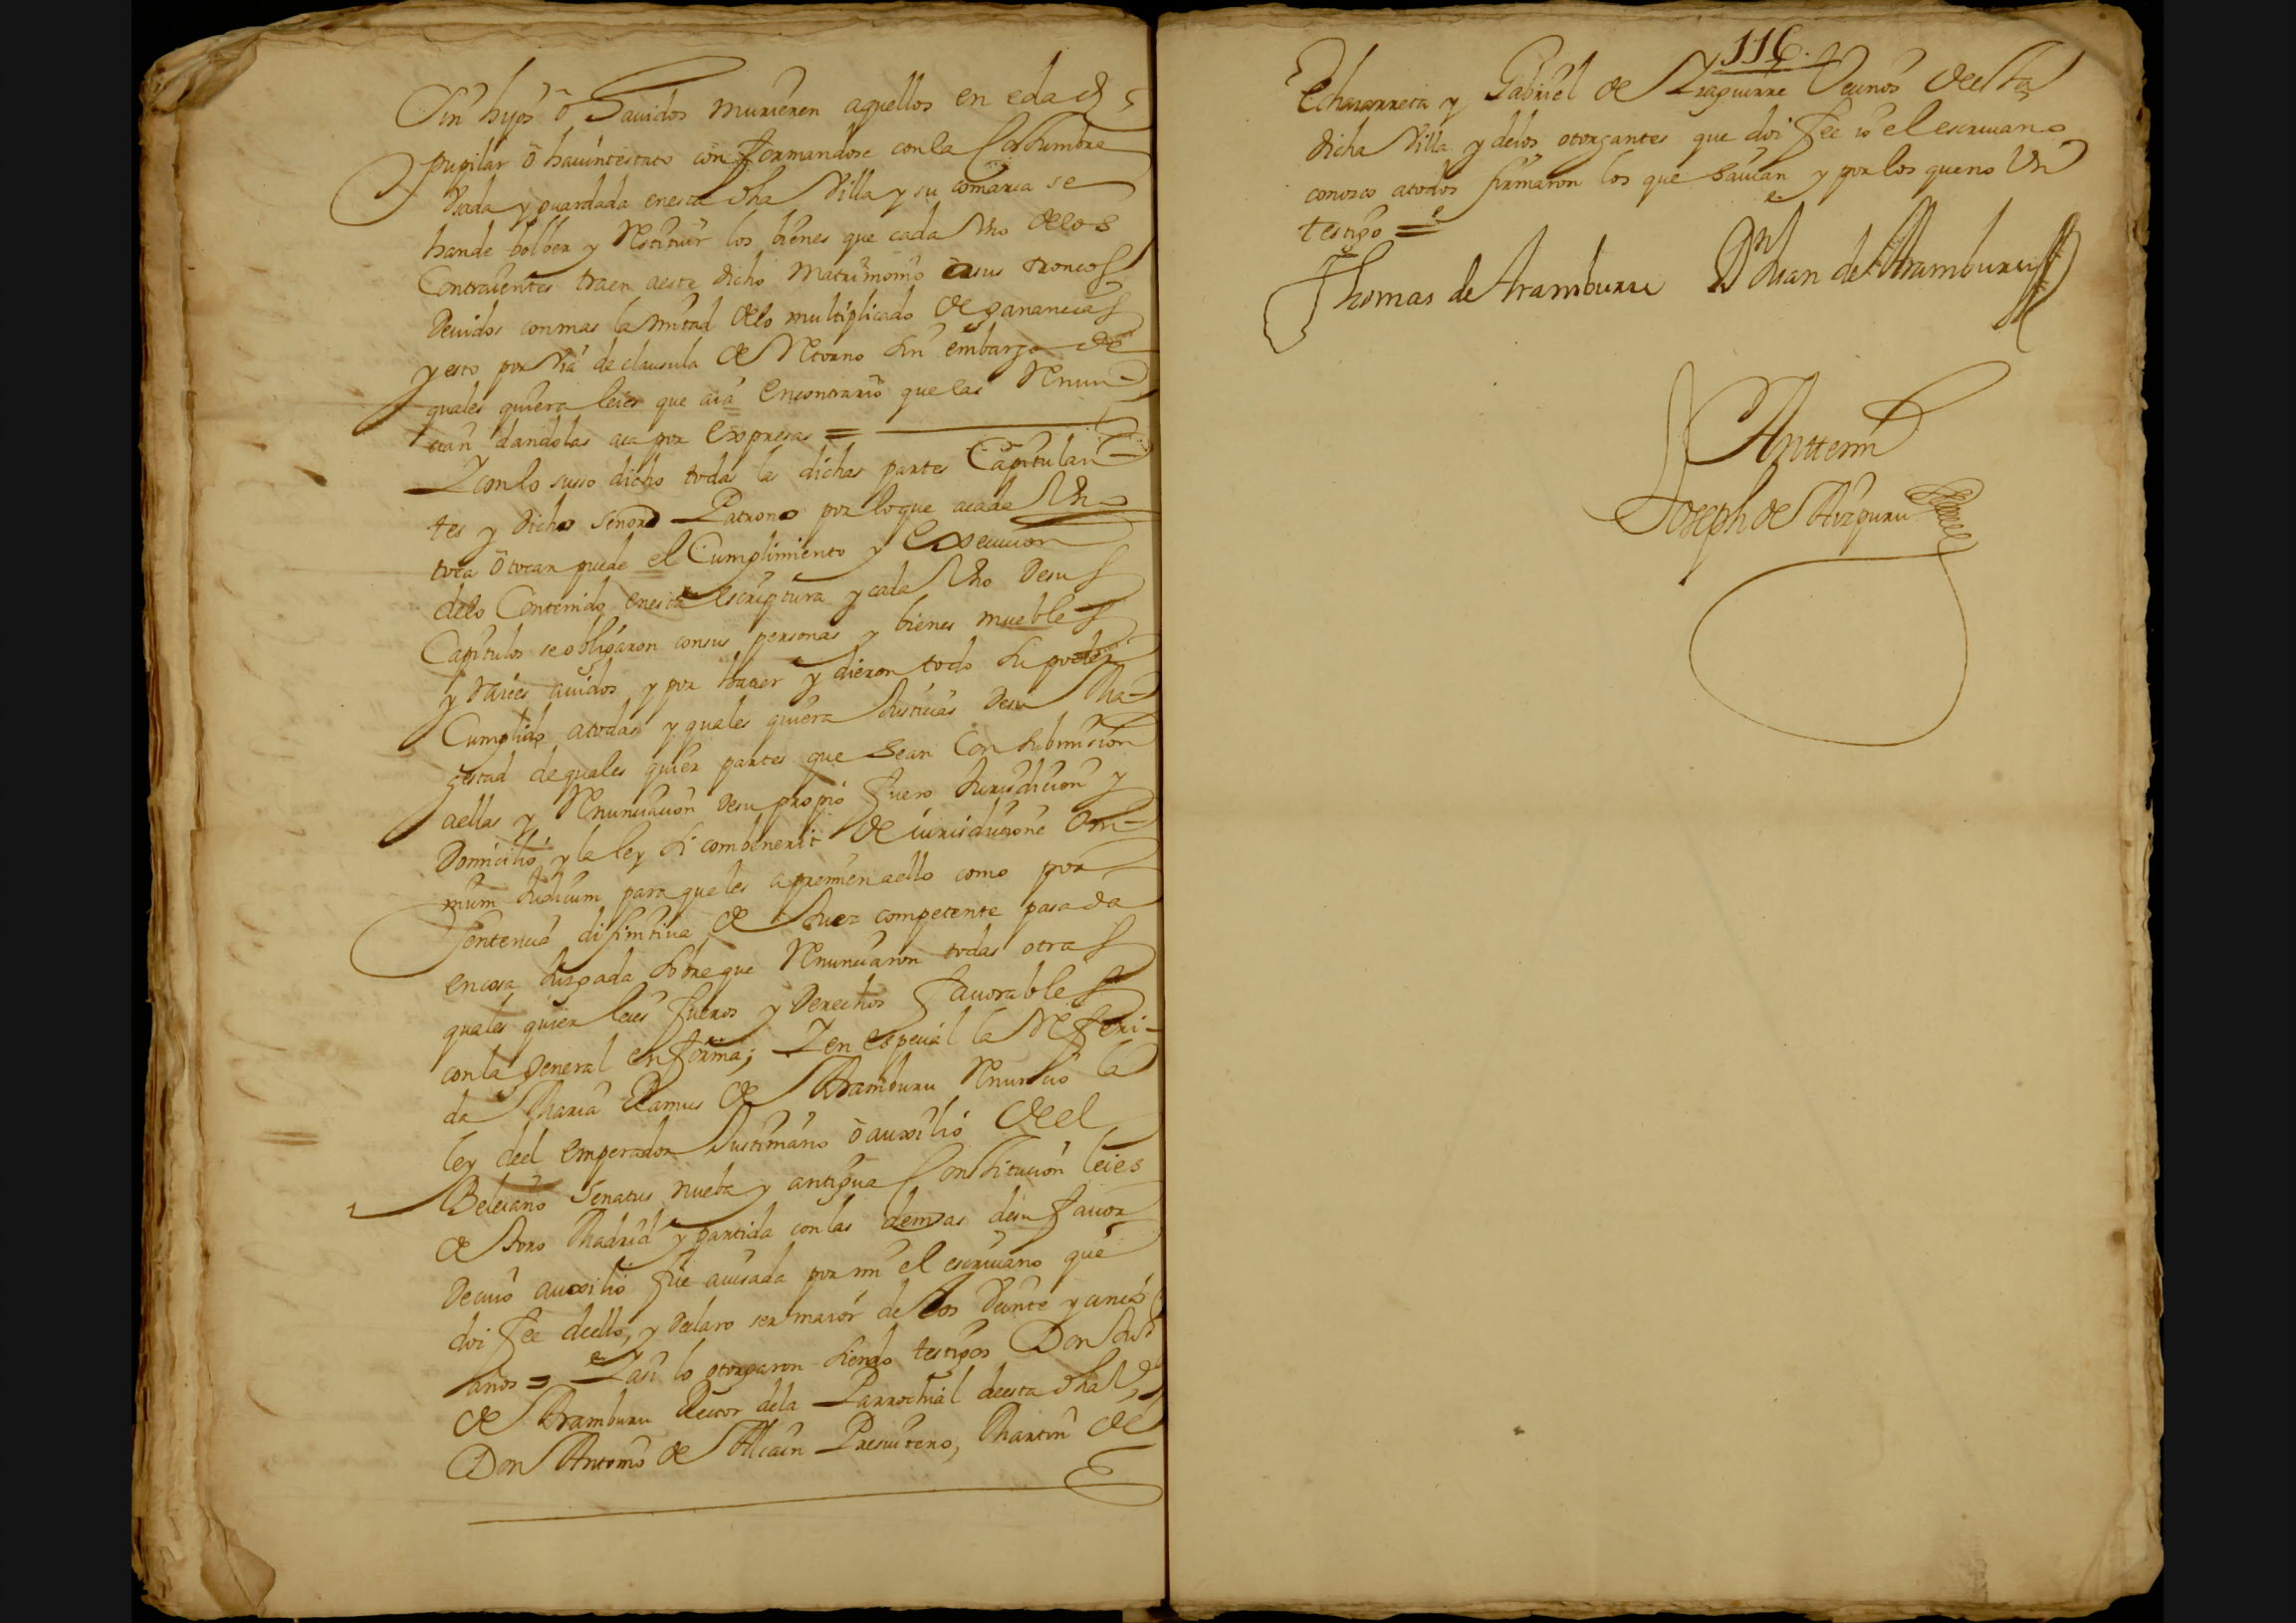 Sin hijos ô havidos murieren aquellos en edad
pupilar ô havintestato conformandose con la Costumbre
Usada y guardada en esta dha Villa y su comarca se
hande bolber y Restituir los bienes que cada Uno delos
Contraientes traen a este dicho Matrimonio â sus troncos
devidos con mas la mitad delo multiplicado de ganancias
y esto por via de clausula de Retorno sin embargo de
quales quiera leies que aia en contrario que las Renun-
cian dandolas aca por expresas =
Y con lo suso dicho todas las dichas partes Capitulan-
tes y dicho Señor Patrono por lo que a cada Uno
toca ô tocar puede el Cumplimiento y Execucion
delo Contenido en esta escriptura y cada Uno de sus
Capitulos se obligaron con sus personas y bienes muebles
y Raices avidos y por haver y dieron todo su poder
Cumplido a todas y quales quiera Justicias de su Ma-
gestad de quales quier partes que sean Con submision
a ellas y Renunciacion de su propio fuero Jurisdicion y
Domicilio, y la ley si combenerit de iurisdicione Om-
nium Judicum para que les apremien a ello como por
Sentencia difinitiva de Juez competente pasada
en cosa Juzgada sobre que Renunciaron todas otras
quales quier leies fueros y derechos favorables
con la general en forma; Y en especial la Referi-
da Maria Ramus de Aramburu Renuncio la
ley del emperador Justiniano ô auxilio del
Beleiano Senatus nueba y antigua Constitucion leies
de toro Madrid y partida con las demas de su favor
de cuio auxilio fue avisada por mi el escrivano que
doi fee dello, y declaro ser maior de los veinte y cinco
años = Y asi lo otorgaron siendo testigos Don Juan
de Aramburu Rector dela Parrochial de esta dha Va
Don Antonio de Alcain Presvitero, Martin de
116.
Echavarreta y Gabriel de Yzaguirre Vecinos de esta
dicha Villa y delos otorgantes que doi fee io el escrivano
conozco a todos firmaron los que savian y por los que no Un
testigo =
Thomas de Aramburu Dn Juan de Aramburu
Antte mi
Joseph de Aizpuru